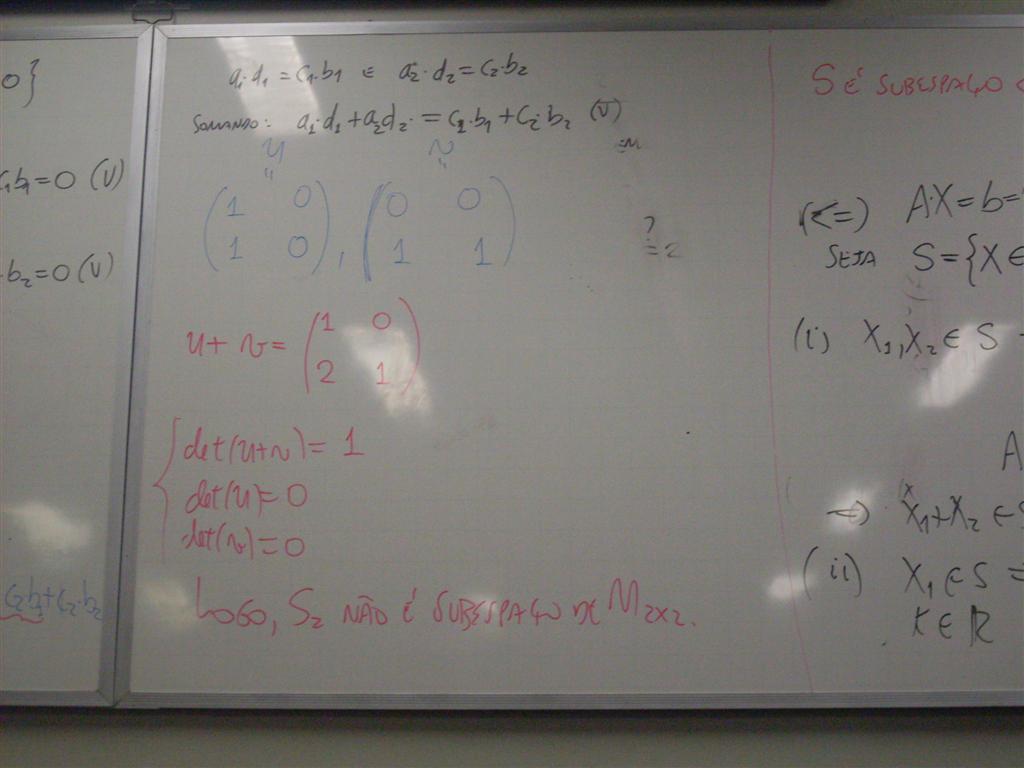 0}
c₁b₁=0 (V)
b₂=0 (V)
c₂b₁+c₂·b₂
a₁·d₁ = c₁·b₁ E a₂·d₂ = c₂·b₂
SOMANDO: a₁·d₁ + a₂d₂· = c₁·b₁ + c₂·b₂ (V)
u v
" "
(1 0), (0 0)
(1 0) (1 1)
?
= 2
u + v = (1 0)
(2 1)
det(u+v) = 1
det(u) = 0
det(v) = 0
LOGO, S₂ NÃO É SUBESPAÇO DE M₂ₓ₂.
S É SUBESPAÇO
(<=) A·X = b =
SEJA S = {X ∈
(i) X₁, X₂ ∈ S
A
=> X₁+X₂ ∈ S
(ii) X₁ ∈ S =
K ∈ ℝ